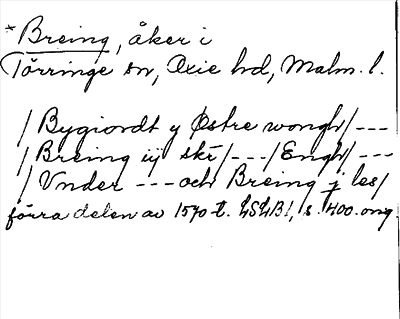 * Breing, åker i
Törringe sn, Oxie hd, Malm. l.
/ Bygiordt y Østre wongh/ ---
/ Breing iij skr/ --- /Engh/ ---
/ Vnder --- och Breing j les/
förra delen av 1570-t. LSLB1, s. 400. ong.